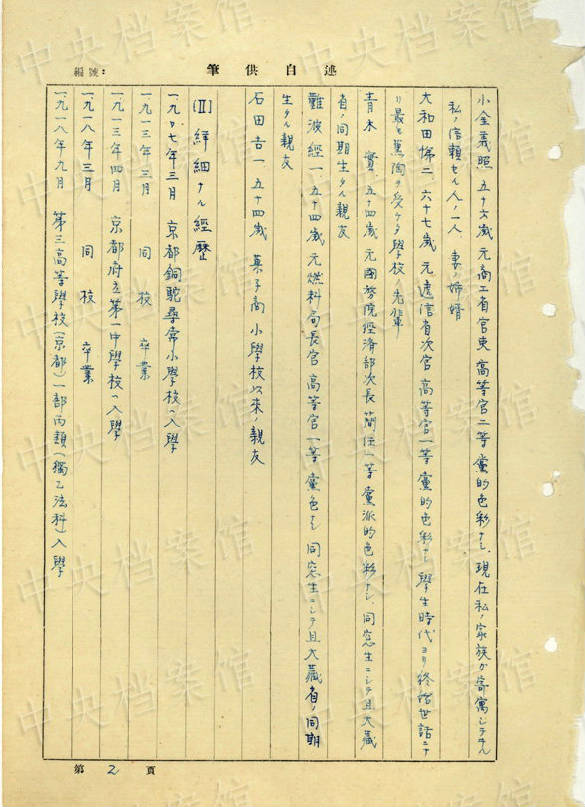 編號：
筆供自述
小金義照 五十六歳 元商工省官吏 高等官二等 黨的色彩ナシ、現在私ノ家族ガ寄寓シテヰル
私ノ信頼セル人ノ一人 妻ノ姉婿
大和田悌二 六十七歳 元遞信省次官 高等官一等 黨的色彩ナシ 學生時代ヨリ終始世話ニナ
リ最モ薫陶ヲ受ケタ學校ノ先輩
青木 實 五十四歳 元國務院経済部次長 簡任一等 黨派的色彩ナシ、同窓生ニシテ且大藏
省ノ同期生タル親友
難波經一 五十四歳 元燃料局長官 高等官一等 黨色ナシ 同窓生ニシテ且大藏省ノ同期
生タル親友
石田吉一 五十四歳 菓子商 小學校以來ノ親友
[II] 詳細ナル經歴
一九〇七年三月 京都銅駝尋常小學校ヘ入學
一九一三年三月 同校 卒業
一九一三年四月 京都府立第一中學校ヘ入學
一九一八年三月 同校 卒業
一九一八年九月 第三高等學校(京都)一部丙類(獨乙法科)入學
第 2 頁
中央档案馆